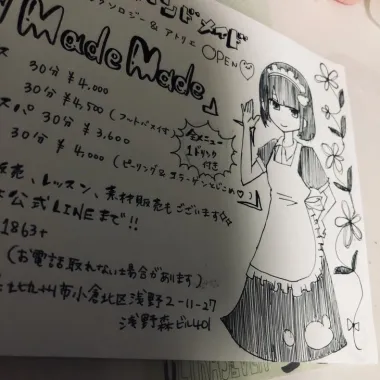 ンドメイド
ランソロジー & アトリエ
Made Made」OPEN
ス
30分 ¥4,000
30分 ¥4,500 (フットバス付き)
スパ 30分 ¥3,600
30分 ¥4,000 (ピーリング & コラーゲンでじこめ♡)
全メニュー
1ドリンク
付き
販売、レッスン、素材販売もございます☆
公式LINEまで!!
1863+
(お電話取れない場合があります)
北九州市小倉北区浅野2-11-27
浅野森ビル401